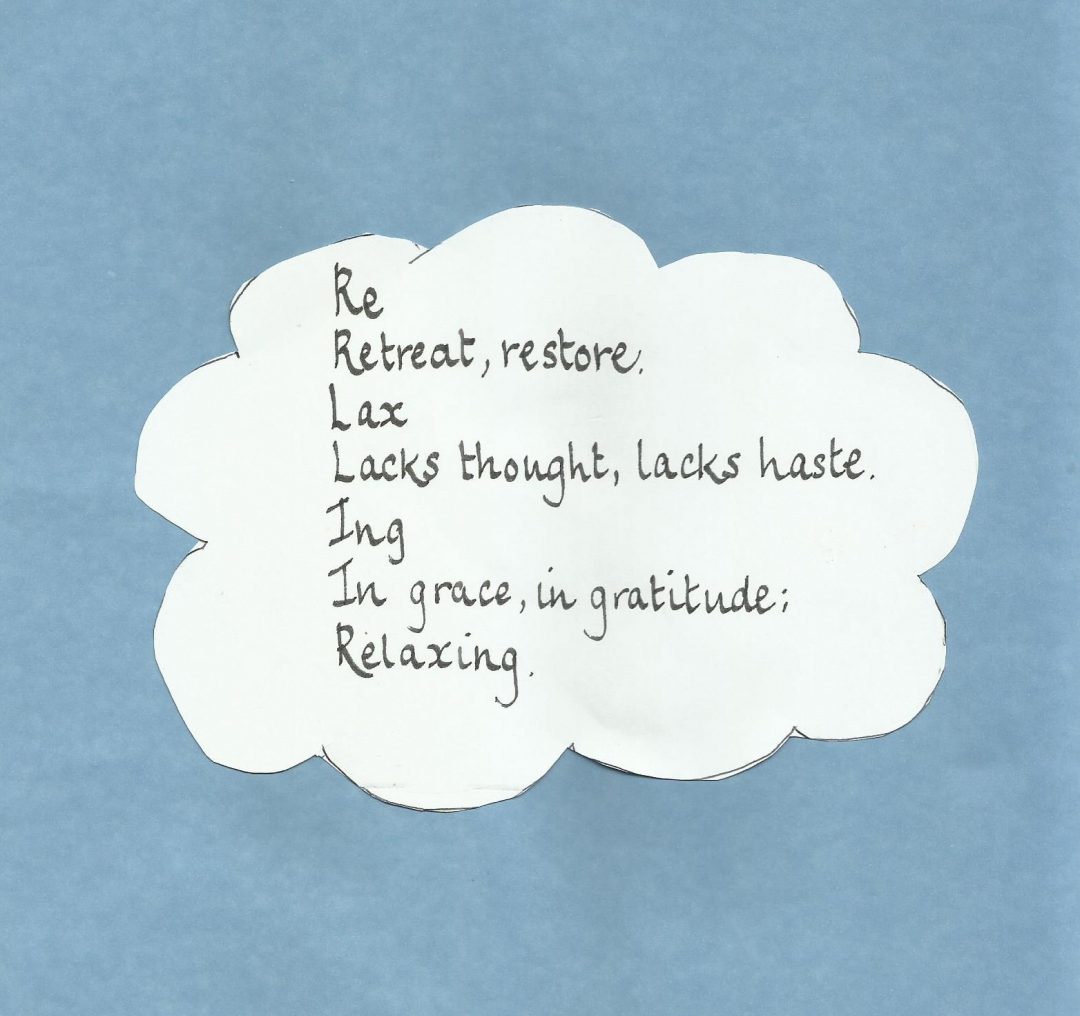 Re
Retreat, restore.
Lax
Lacks thought, lacks haste.
Ing
In grace, in gratitude;
Relaxing.